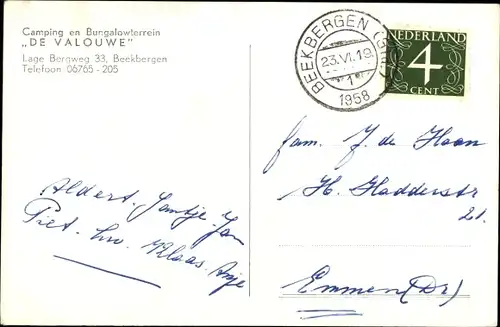 Camping en Bungalowterrein
„DE VALOUWE"
Lage Bergweg 33, Beekbergen
Telefoon 06765 - 205
BEEKBERGEN (GLD)
23.VI.19
1
1958
NEDERLAND
4
CENT
fam. J. de Haan
H. Hadderstr
21.
Emmen (Dr)
Aldert. Jantje. Jan
Piet. Klaas. Anje